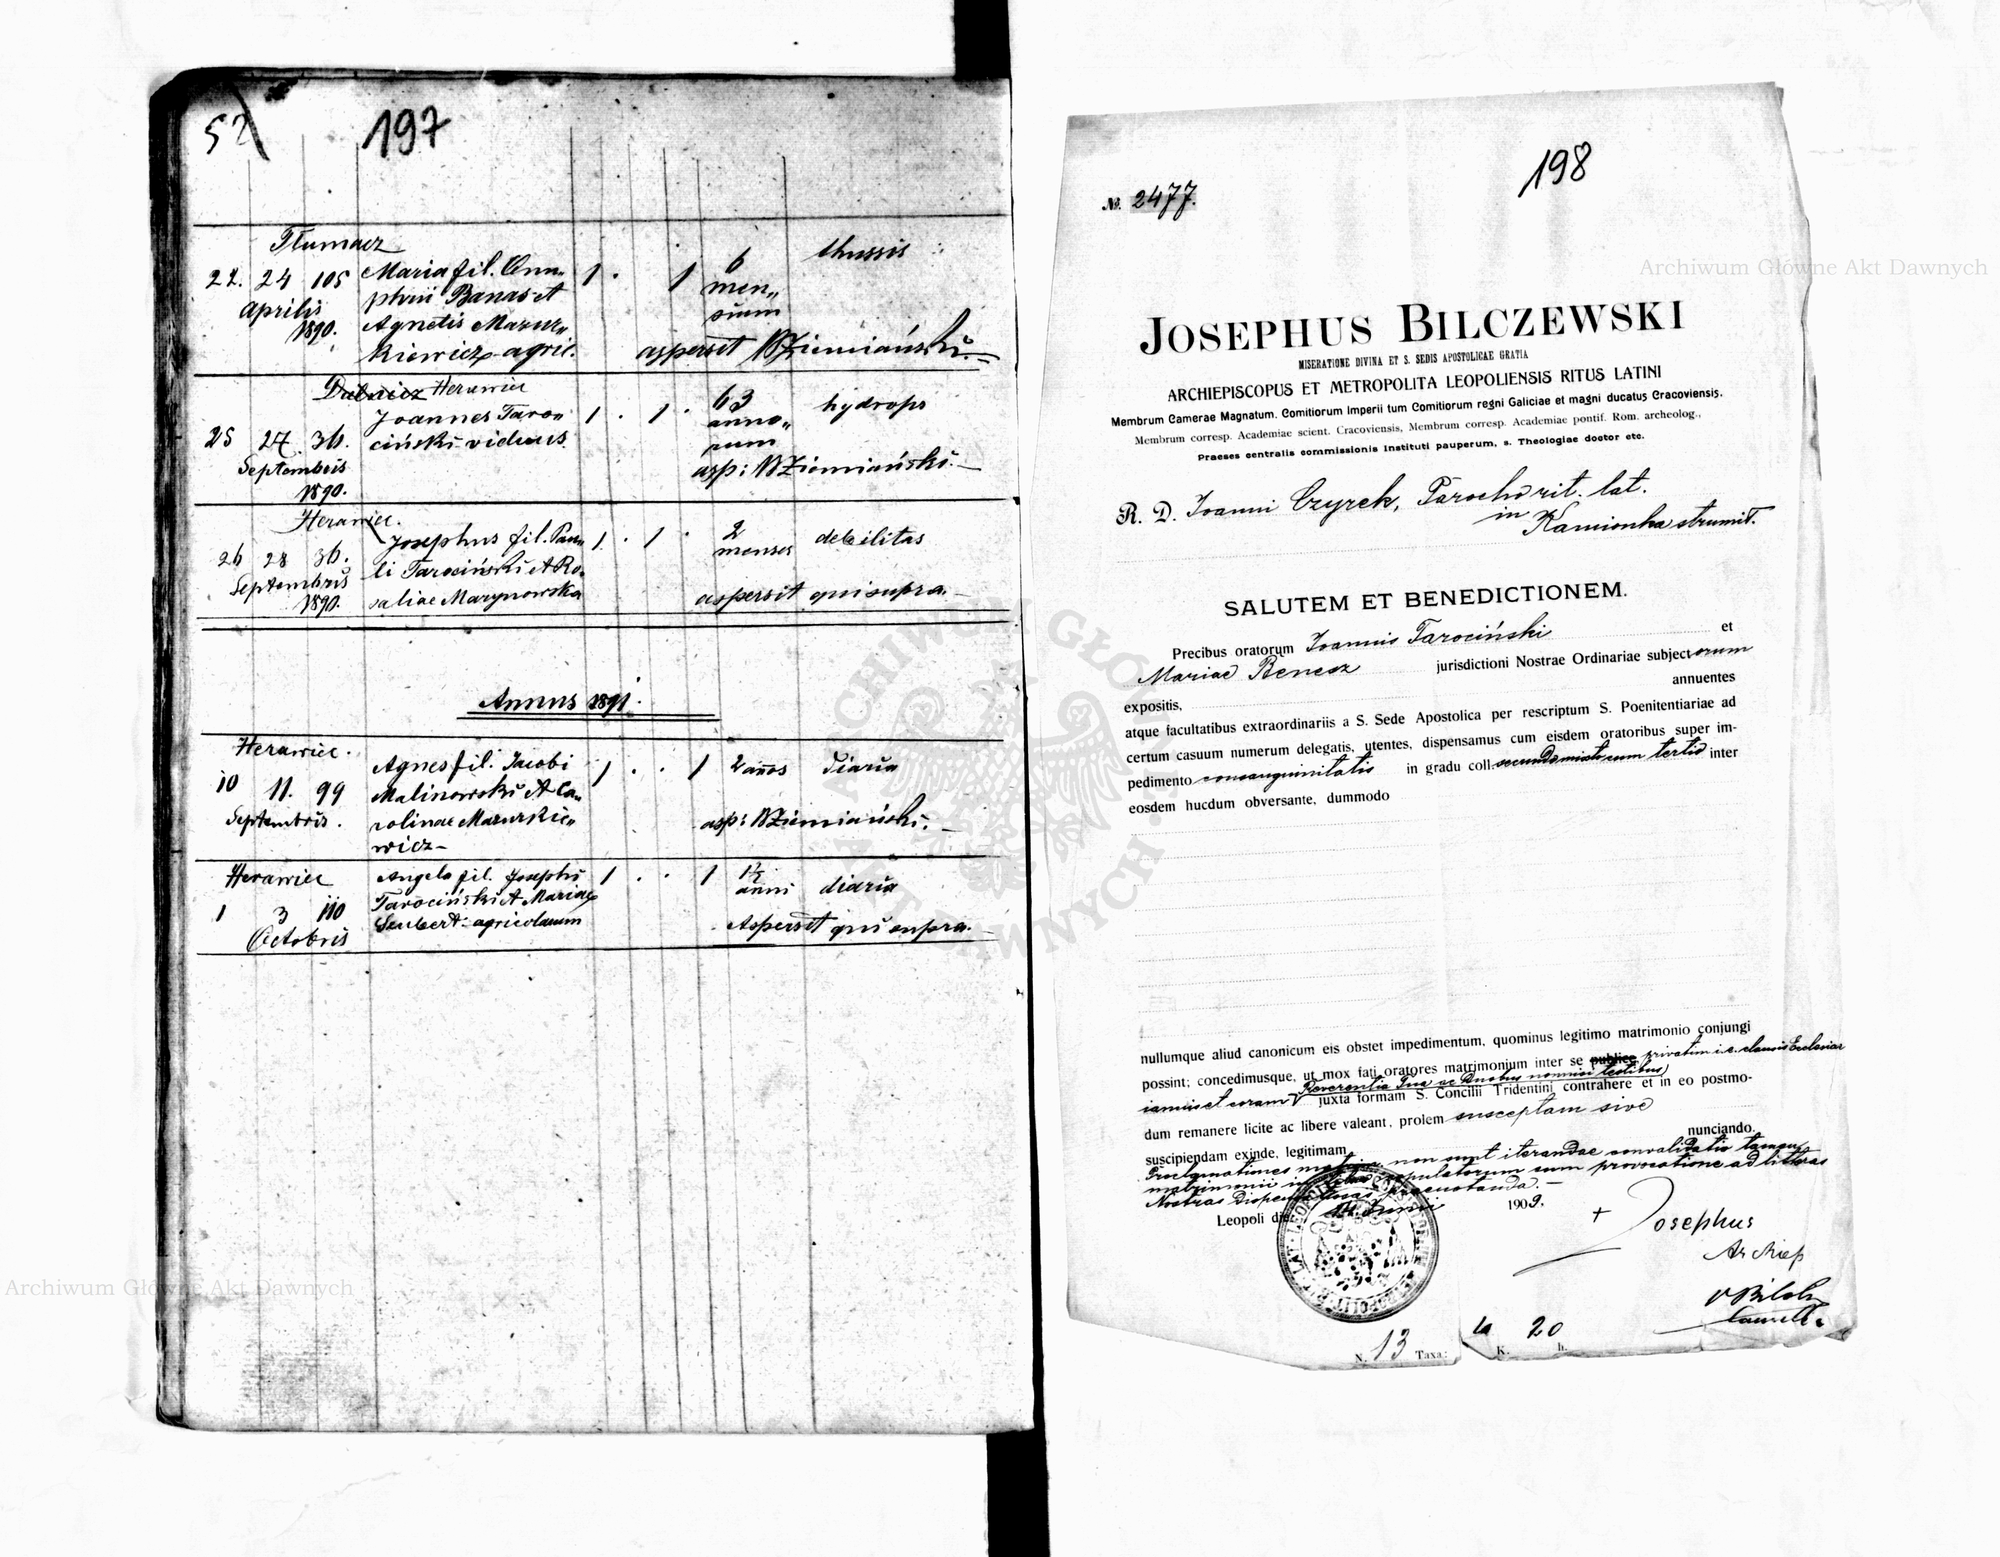 52
197
Tłumacz
thussis
22. 24 105 Maria fil. Onu„ 1 . 1 6
Aprilis phrii Banas et men„
1890. Agnetis Mazur„ sium
kiewicz agric. aspersit WZiemiański.
Herawiec
Joannes Taro„ 1 . 1 . 63 hydrops
25 27. 36. ciński viduus anno„
Septembris rum
1890. asp: WZiemiański.
Herawiec.
Josephus fil. Pau„ 1 . 1 . 2 debilitas
26 28 36. li Tarociński et Ro„ menses
Septembris saliae Mazynowska aspersit qui supra.
1890.
Annus 1891.
Herawiec.
Agnes fil. Jacobi 1 . . 1 2 años diaria
10 11. 99 Malinowski et Ca„
Septembris. rolinae Mazurkie„ asp: WZiemiański.
wicz
Herawiec Angela fil. Josephi 1 . . 1 1½
1 3 110 Tarociński et Mariae anni diaria
Octobris Szubert agricolarum Aspersit qui supra.
198
№. 2477.
JOSEPHUS BILCZEWSKI
MISERATIONE DIVINA ET S. SEDIS APOSTOLICAE GRATIA
ARCHIEPISCOPUS ET METROPOLITA LEOPOLIENSIS RITUS LATINI
Membrum Camerae Magnatum, Comitiorum Imperii tum Comitiorum regni Galiciae et magni ducatus Cracoviensis,
Membrum corresp. Academiae scient. Cracoviensis, Membrum corresp. Academiae pontif. Rom. archeolog.,
Praeses centralis commissionis Instituti pauperum, s. Theologiae doctor etc.
R. D. Joanni Czyrek, Parocho rit. lat.
in Kamionka strumił.
SALUTEM ET BENEDICTIONEM.
Precibus oratorum Joannis Tarociński et
Mariae Benesz jurisdictioni Nostrae Ordinariae subjectorum
expositis, annuentes
atque facultatibus extraordinariis a S. Sede Apostolica per rescriptum S. Poenitentiariae ad
certum casuum numerum delegatis, utentes, dispensamus cum eisdem oratoribus super im-
pedimento consanguinitatis in gradu coll. secundo mixto cum tertio inter
eosdem hucdum obversante, dummodo
nullumque aliud canonicum eis obstet impedimentum, quominus legitimo matrimonio conjungi
possint; concedimusque, ut mox fati oratores matrimonium inter se publice privatim i. e. clausis Ecclesiae
ianuis et coram Reverentia Tua ac duobus testibus juxta formam S. Concilii Tridentini contrahere et in eo postmo-
dum remanere licite ac libere valeant, prolem susceptam sive
suscipiendam exinde, legitimam nunciando.
Proclamationes non sunt iterandae convalidatio tamen
matrimonii copulatorum cum provocatione ad litteras
Nostras
Leopoli die 14. Junii 1909.
+ Josephus
Archiep
N. 13 Taxa: K. 20 h.
Archiwum Główne Akt Dawnych
Archiwum Główne Akt Dawnych
ARCHIWUM GŁÓWNE AKT DAWNYCH